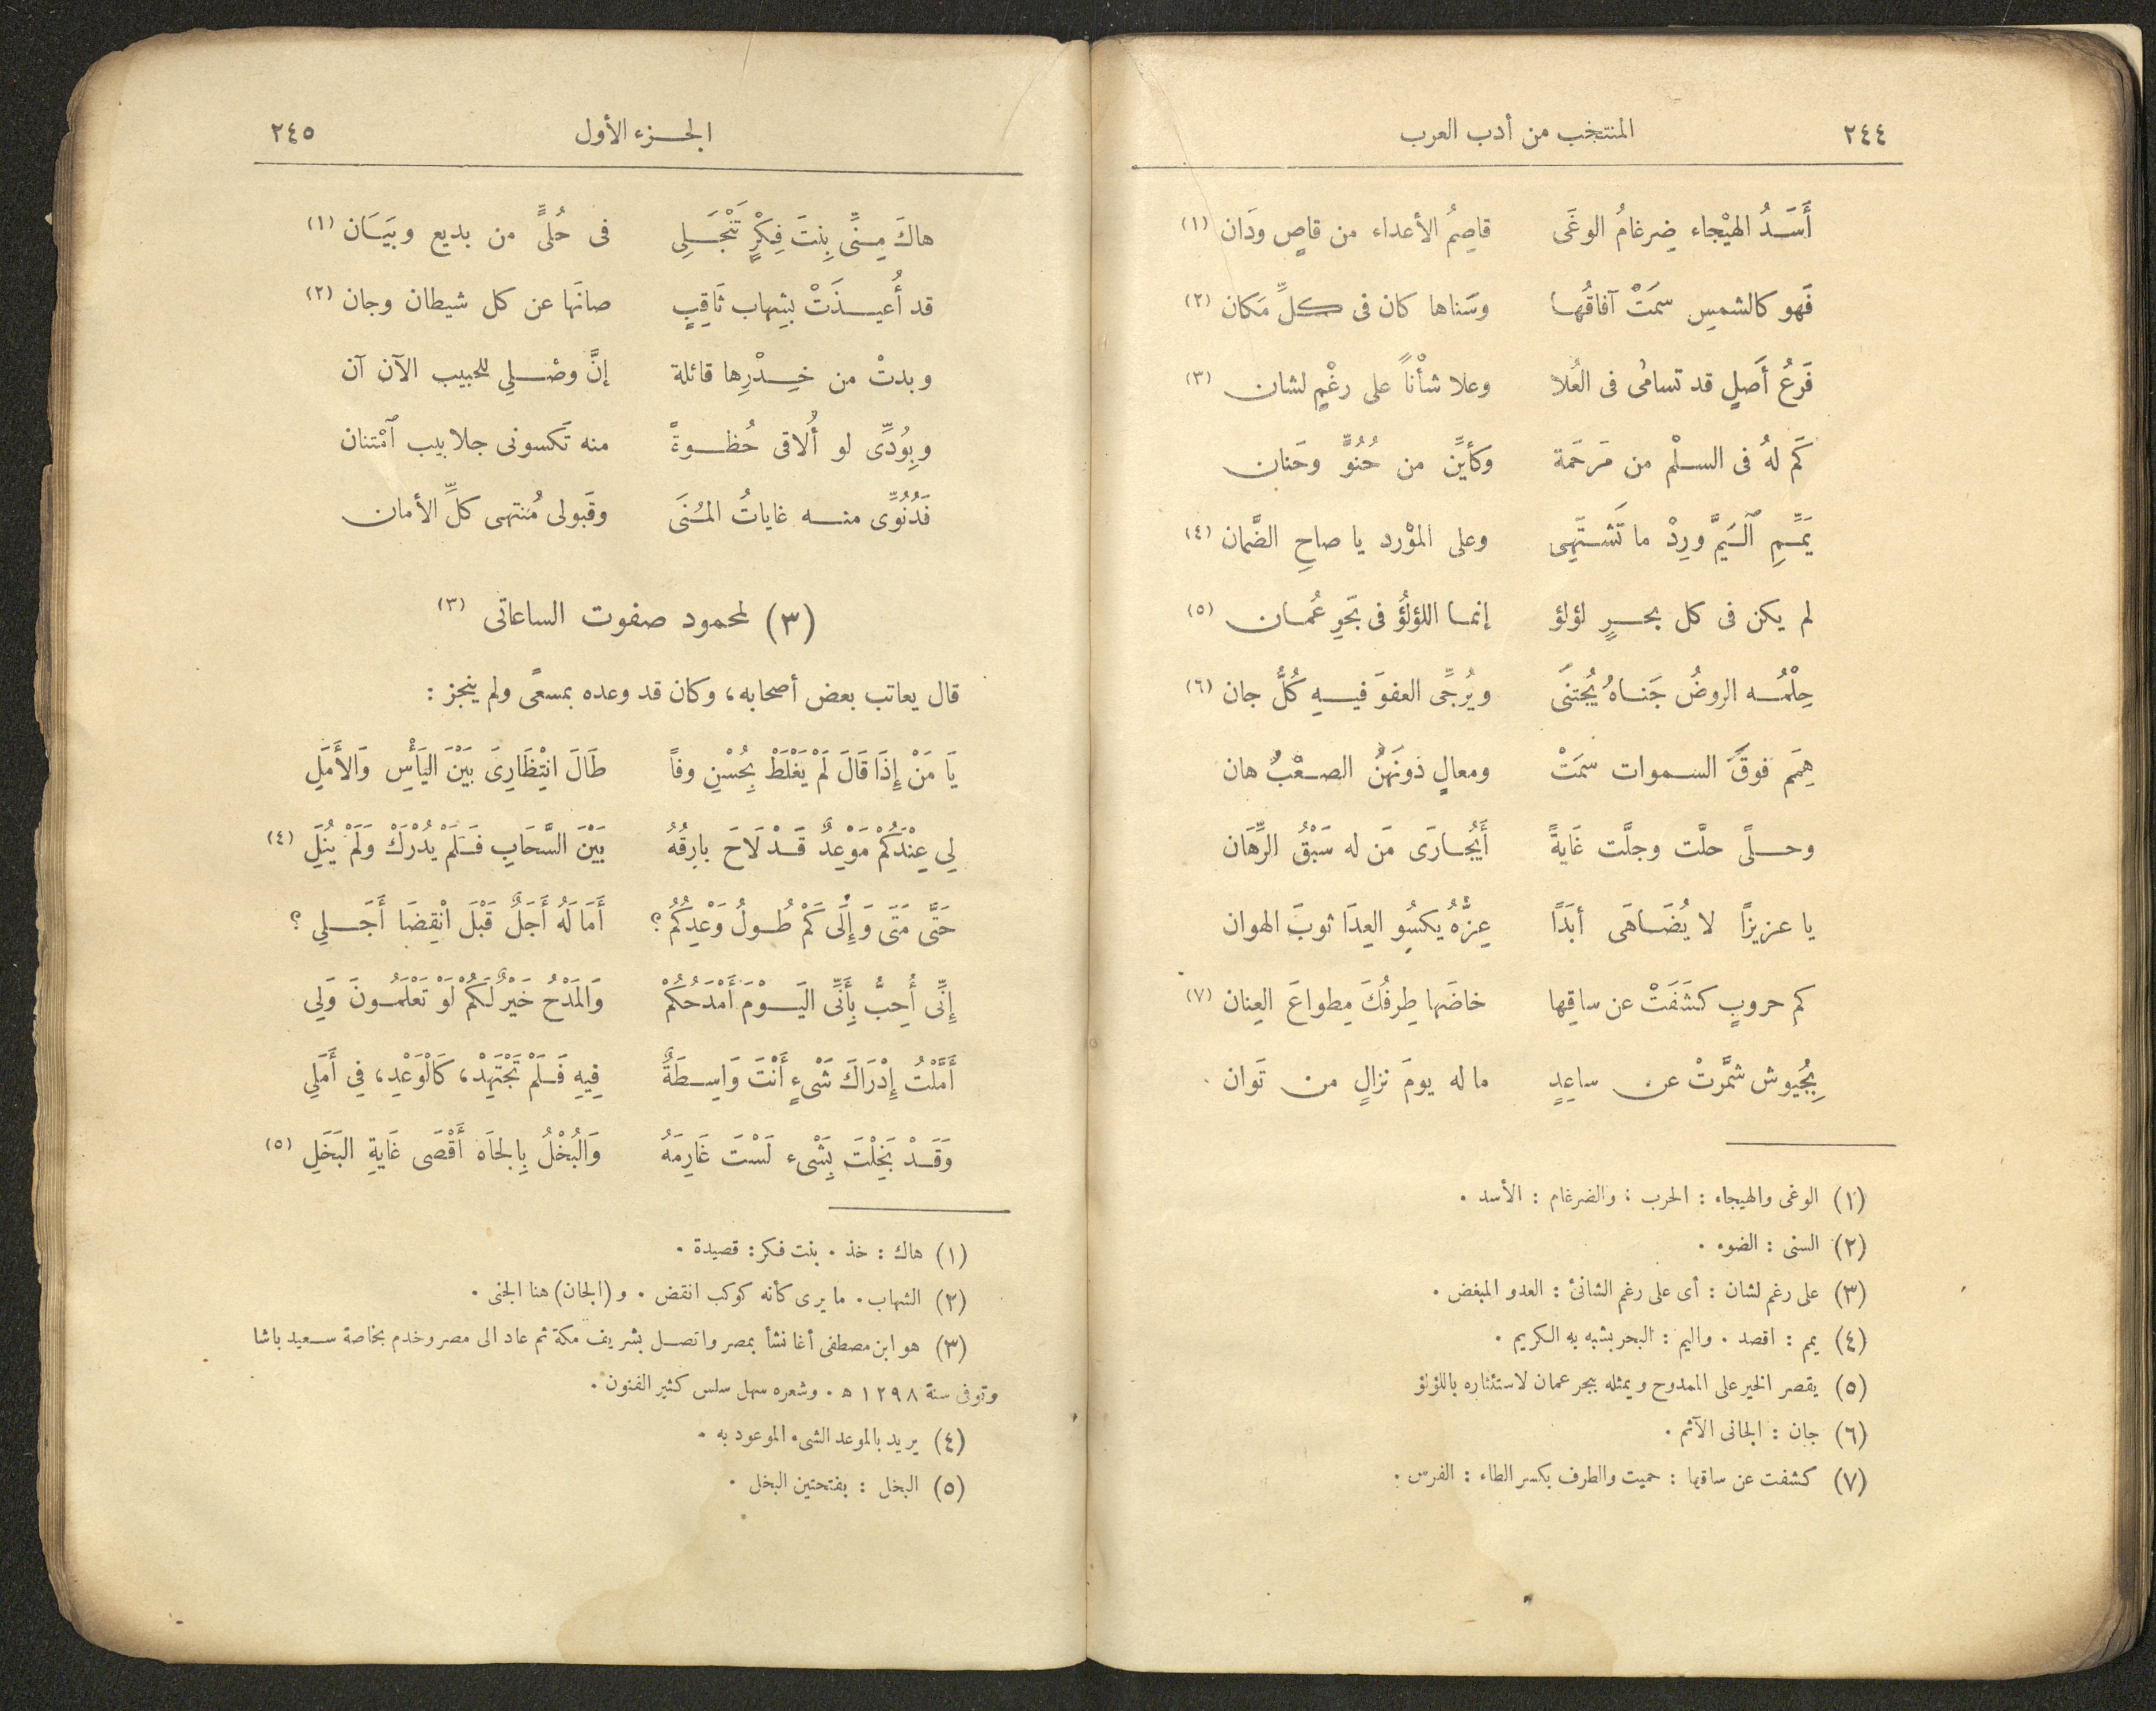 ٢٤٤ المنتخب من أدب العرب
أَسَدُ الهيْجاء ضِرغامُ الوغَى قاصِمُ الأعداء من قاصٍ ودَان (١)
فَهو كالشمسِ سمَتْ آفاقُها وسَناها كان فى كلِّ مَكان (٢)
فَرعُ أَصلٍ قد تسامى فى العُلا وعلا شأْناً على رغْمٍ لشان (٣)
كَم لهُ فى السلْم من مَرحَمة وكأيِّن من حُنُوٍّ وحَنان
يَمِّمِ ٱليَمَّ ورِدْ ما تَشتَهِى وعلى الموْرد يا صاحِ الضَّمان (٤)
لم يكن فى كل بحرٍ لؤلؤ إنما اللؤلؤُ فى بَحرِ عُمان (٥)
حِلْمُه الروضُ جَناهُ يُجتنَى ويُرجِّى العفوَ فيهِ كُلُّ جان (٦)
هِمَم فوقَ السموات سمَتْ ومعالٍ دونَهنُّ الصعْبُ هان
وحلىً حلَّت وجلَّت غَايةً أَيُجارَى مَن له سَبْقُ الرِّهَان
يا عزيزًا لا يُضَاهَى أبَدًا عِزُّهُ يكسُو العِدَا ثوبَ الهوان
كم حروبٍ كشَفَتْ عن ساقِها خاضَها طِرفُكَ مِطواعَ العِنان (٧)
بِجُيوش شمَّرتْ عن ساعِدٍ ما له يومَ نزالٍ من تَوان
(١) الوغى والهيجاء : الحرب ؛ والضرغام : الأسد .
(٢) السنى : الضوء .
(٣) على رغم لشان : أى على رغم الشانئ : العدو المبغض .
(٤) يمم : اقصد . واليم : البحر يشبه به الكريم .
(٥) يقصر الخير على الممدوح ويمثله ببحر عمان لاستئثاره باللؤلؤ
(٦) جان : الجانى الآثم .
(٧) كشفت عن ساقها : حميت والطرف بكسر الطاء : الفرس .
الجزء الأول ٢٤٥
هاكَ مِنِّى بِنتَ فِكْرٍ تَنْجَلِى فى حُلىً من بديع وبَيَان (١)
قد أُعيذَتْ بشِهاب ثَاقِبٍ صانَها عن كل شيطان وجان (٢)
وبدتْ من خِدْرِها قائلة إنَّ وصْلِى للحبيب الآن آن
وبِوُدِّى لو أُلاقى حُظوةً منه تَكسونى جلابيب ٱمْتنان
فَدُنُوِّى منه غاياتُ المُنَى وقَبولى مُنتهى كلِّ الأمان
(٣) لمحمود صفوت الساعاتى (٣)
قال يعاتب بعض أصحابه، وكان قد وعده بمسعًى ولم ينجز :
يَا مَنْ إِذَا قَالَ لَمْ يَغْلَطْ بِحُسْنِ وفاً طَالَ انْتِظَارِىَ بَيْنَ اليَأْسِ وَالأَمَلِ
لِي عِنْدَكُمْ مَوْعِدٌ قَدْ لَاحَ بارِقُهُ بَيْنَ السَّحَابِ فَلَمْ يُدْرَكْ وَلَمْ يُنَلِ (٤)
حَتَّى مَتَى وَإِلَى كَمْ طُولُ وَعْدِكُمُ ؟ أَمَا لَهُ أَجَلٌ قَبْلَ انْقِضَا أَجَلِى ؟
إِنِّى أُحِبُّ بِأَنِّى اليَوْمَ أَمْدَحُكُمْ وَالمَدْحُ خَيْرٌ لَكُمْ لَوْ تَعْلَمُونَ وَلِى
أَمَّلْتُ إِدْرَاكَ شَىْءٍ أَنْتَ وَاسِطَةٌ فِيهِ فَلَمْ تَجْتَهِدْ، كَالْوَعْدِ، فِي أَمَلِي
وَقَدْ بَخِلْتَ بِشَىْء لَسْتَ غَارِمَهُ وَالبُخْلُ بِالجَاه أَقْصَى غَايةِ البَخَلِ (٥)
(١) هاك : خذ . بنت فكر : قصيدة .
(٢) الشهاب . ما يرى كأنه كوكب انقض . و (الجان) هنا الجنى .
(٣) هو ابن مصطفى أغا نشأ بمصر واتصل بشريف مكة ثم عاد الى مصر وخدم بخاصة سعيد باشا
وتوفى سنة ١٢٩٨ ه . وشعره سهل سلس كثير الفنون .
(٤) يريد بالموعد الشىء الموعود به .
(٥) البخل : بفتحتين البخل .